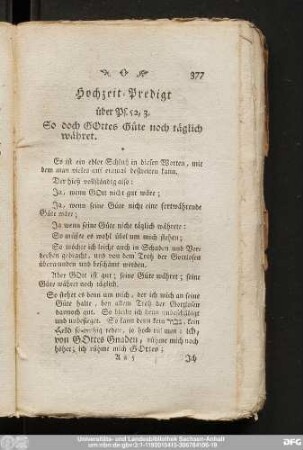 377
Hochzeit-Predigt
über Ps. 52, 3.
So doch GOttes Güte noch täglich
währet.
*
Es ist ein edler Schluß in diesen Worten, mit
dem man vieles auf einmal bestreiten kann.
Der hieß vollständig also:
Ja, wenn GOtt nicht gut wäre;
Ja, wenn seine Güte nicht eine fortwährende
Güte wäre;
Ja wenn seine Güte nicht täglich währete:
So müßte es wohl übel um mich stehen;
So möchte ich leicht noch in Schaden und Ver-
derben gebracht, und von dem Trotz der Gottlosen
überwunden und beschämt werden.
Aber GOtt ist gut; seine Güte währet; seine
Güte währet noch täglich.
So stehet es denn um mich, der ich mich an seine
Güte halte, bey allem Trotz der Gottlosen
dennoch gut. So bleibt ich denn unbeschädigt
und unbesiegt. So kann denn kein גבור, kein
Held so hoch rühmen: ich,
von GOttes Gnaden, rühme mich noch
höher; ich rühme mich GOttes;
A a 5
Ich
Universitäts- und Landesbibliothek Sachsen-Anhalt
urn:nbn:de:gbv:3:1-1192015415-396784106-19